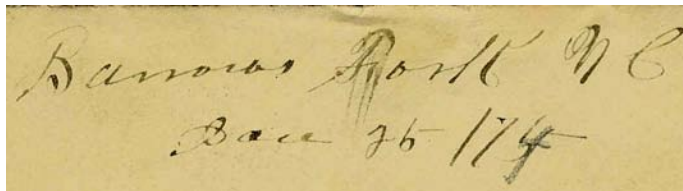 Barrows Fork N C
Dec 25 174